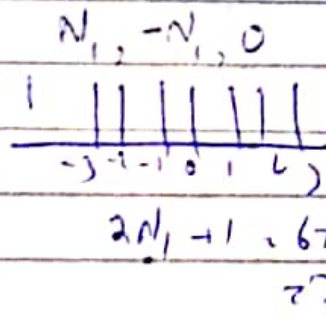 N₁, -N₁, 0
-3 -2 -1 0 1 2 3
2N₁ + 1 = 6
= 7